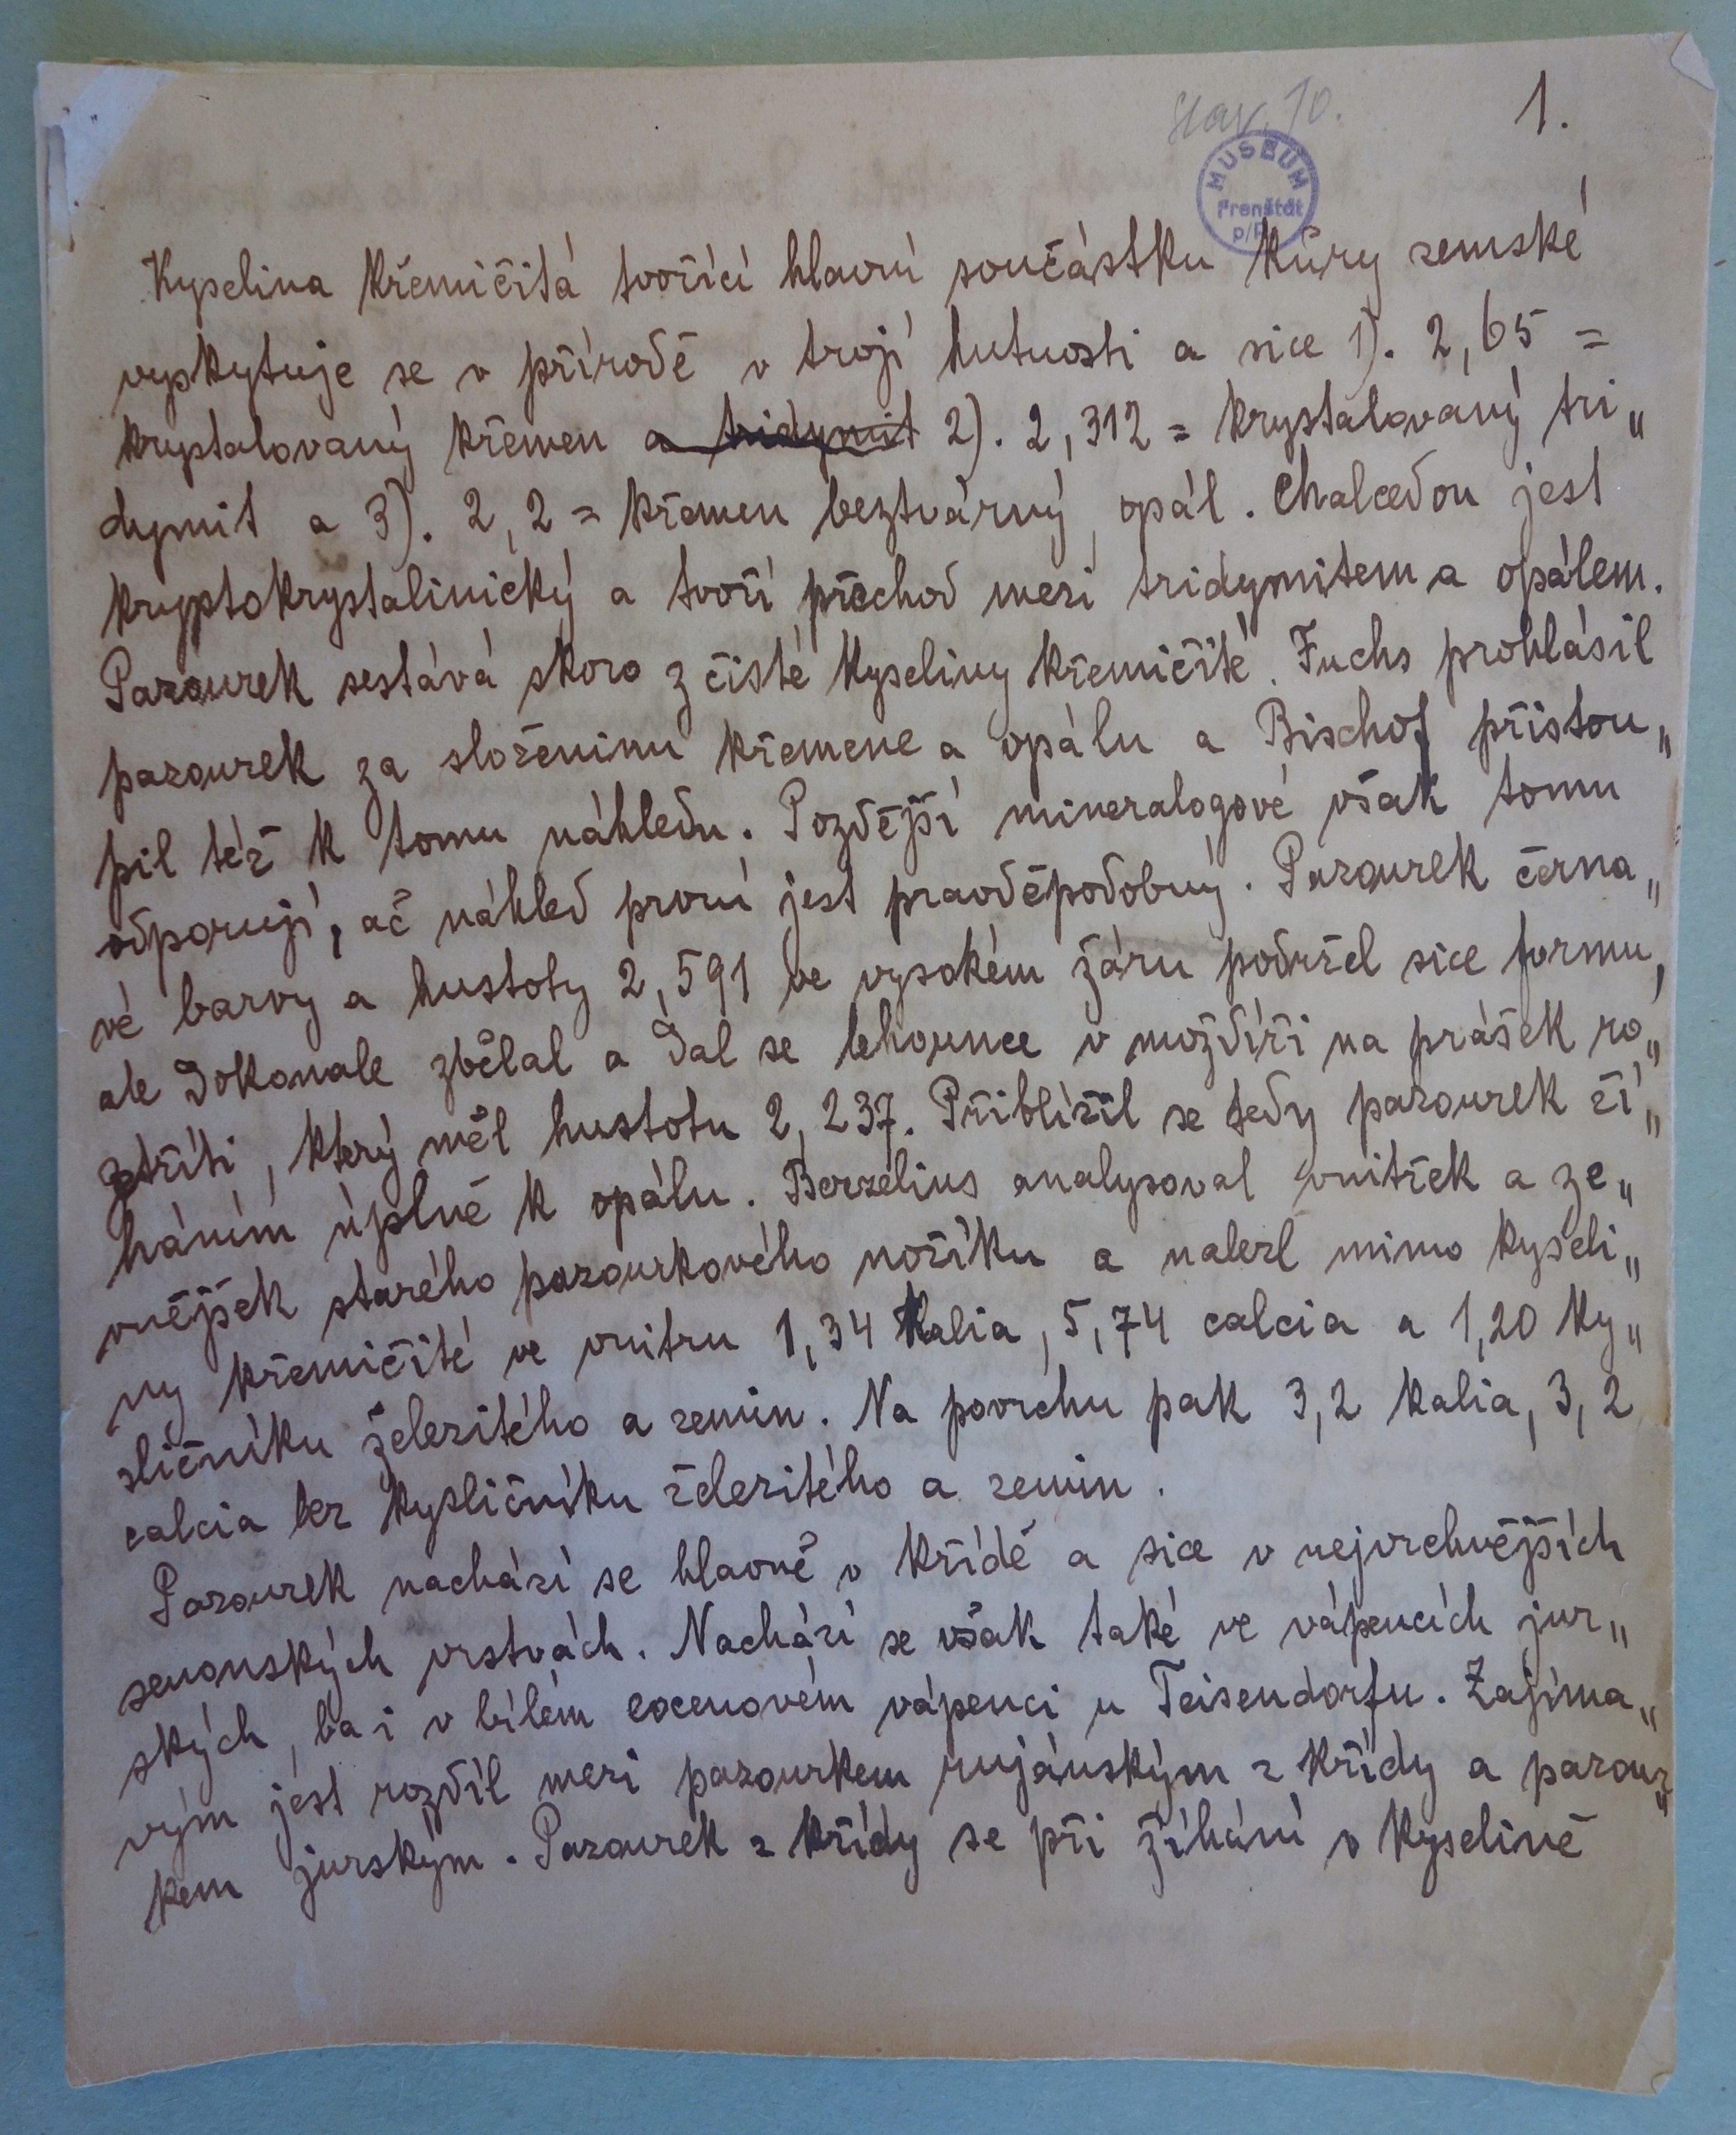 1.
MUSEUM
Frenštát
p/R
Kyselina křemičitá tvořící hlavní součástku kůry zemské
vyskytuje se v přírodě v trojí hutnosti a sice 1). 2,65 =
krystalovaný křemen a tridymit 2). 2,312 = krystalovaný tri„
dymit a 3). 2,2 = křemen beztvárný, opál. Chalcedon jest
kryptokrystalinický a tvoří přechod mezi tridymitem a opálem.
Pazourek sestává skoro z čisté kyseliny křemičité. Fuchs prohlásil
pazourek za složeninu křemene a opálu a Bischof přistou„
pil též k tomu náhledu. Pozdější mineralogové však tomu
odporují, ač náhled první jest pravděpodobný. Pazourek černa„
vé barvy a hustoty 2,591 ve vysokém žáru podržel sice formu,
ale dokonale zbělal a dal se lehounce v moždíři na prášek ro„
ztříti, který měl hustotu 2,237. Přiblížil se tedy pazourek ží„
háním úplně k opálu. Berzelius analysoval vnitřek a ze„
vnějšek starého pazourkového nožíku a nalezl mimo kyseli„
ny křemičité ve vnitru 1,34 kalia, 5,74 calcia a 1,20 ky„
sličníku železitého a zemin. Na povrchu pak 3,2 kalia, 3,2
calcia bez kysličníku železitého a zemin.
Pazourek nachází se hlavně v křídě a sice v nejvrchnějších
senonských vrstvách. Nachází se však také ve vápencích jur„
ských, ba i v bílém eocenovém vápenci u Teisendorfu. Zajíma„
vým jest rozdíl mezi pazourkem rujánským z křídy a pazour„
kem jurským. Pazourek z křídy se při žíhání v kyselině